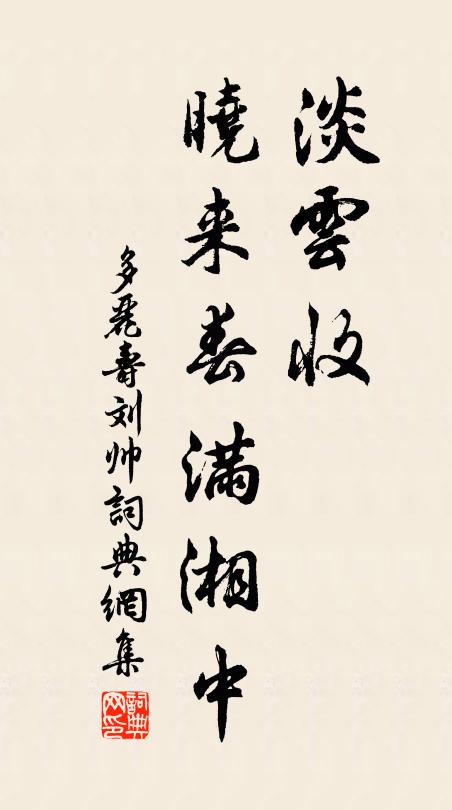 淡雲收
曉来春滿湘中
多麗壽刘帅詞典網集
詞典网印